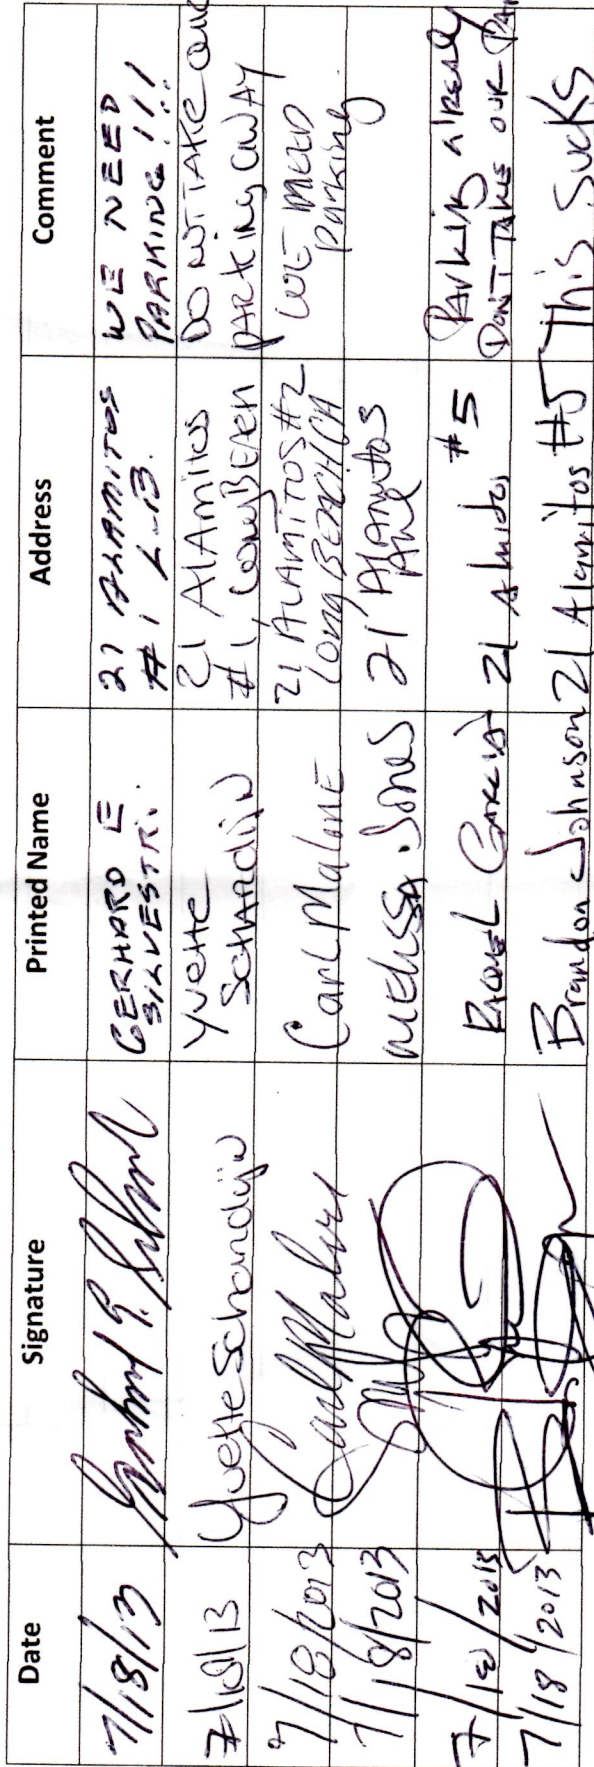 Date Signature Printed Name Address Comment
7/18/13 GERHARD E 21 ALAMITOS WE NEED
SILVESTRI. #1 L.B. PARKING!!!
7/18/13 Yvette Schandijn Yvette 21 AlAmitos DO NOT TAKE OUR
Schandijn #1, Long BEACH PARKING AWAY
7/18/2013 Carl Malone Carl Malone 21 ALAMITOS #2 WE NEED
Long BEACH CA parking.
7/18/2013 Melissa Jones 21 Alamitos
Ave
7/18/2013 RAQUEL GARCIA 21 Alamitos #5 Parking already
DON'T TAKE OUR PAR
7/18/2013 Brandon Johnson 21 Alamitos #5 This Sucks